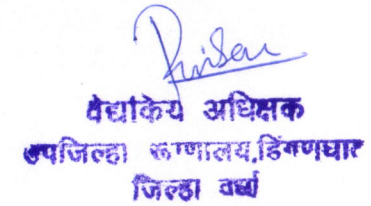 वैद्यकिय अधिक्षक
उपजिल्हा रूग्णालय,हिंगणघाट
जिल्हा वर्धा